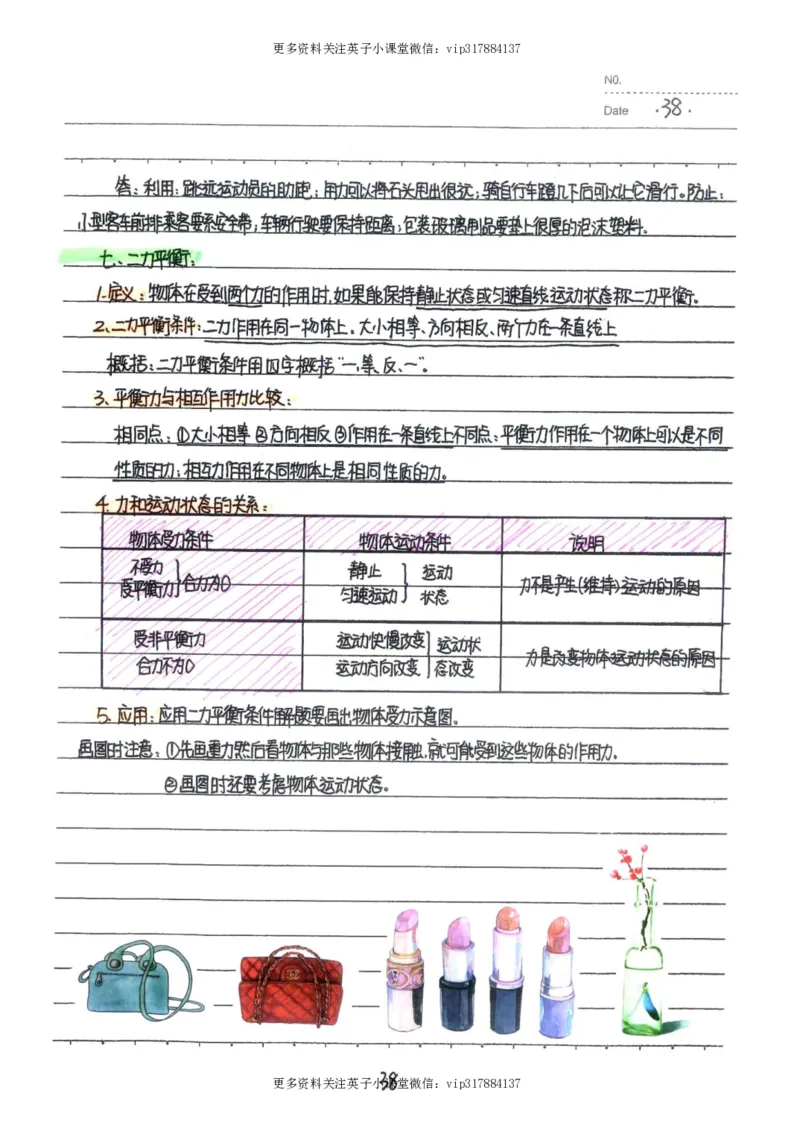 更多资料关注英子小课堂微信：vip317884137
NO.
Date ·38·
答：利用：跳远运动员的助跑；用力可以将石头甩出很远；骑自行车蹬几下后可以让它滑行。防止：
小型客车前排乘客要系安全带；车辆行驶要保持距离；包装玻璃制品要垫上很厚的泡沫塑料。
七、二力平衡：
1.定义：物体在受到两个力的作用时，如果能保持静止状态或匀速直线运动状态称二力平衡。
2、二力平衡条件：二力作用在同一物体上。大小相等、方向相反、两个力在一条直线上
概括：二力平衡条件用四字概括“一、等、反、一”。
3、平衡力与相互作用力比较：
相同点：①大小相等②方向相反③作用在一条直线上不同点：平衡力作用在一个物体上可以是不同
性质的力；相互力作用在不同物体上是相同性质的力。
4.力和运动状态的关系：
物体受力条件 物体运动条件 说明
不受力
受平衡力 }合力为0 静止
匀速运动 } 运动
状态 力不是产生(维持)运动的原因
受非平衡力
合力不为0 运动快慢改变
运动方向改变 运动状
态改变 力是改变物体运动状态的原因
5.应用：应用二力平衡条件解题要画出物体受力示意图。
画图时注意：①先画重力然后看物体与那些物体接触，就可能受到这些物体的作用力。
②画图时还要考虑物体运动状态。
更多资料关注英子小课堂微信：vip317884137
38